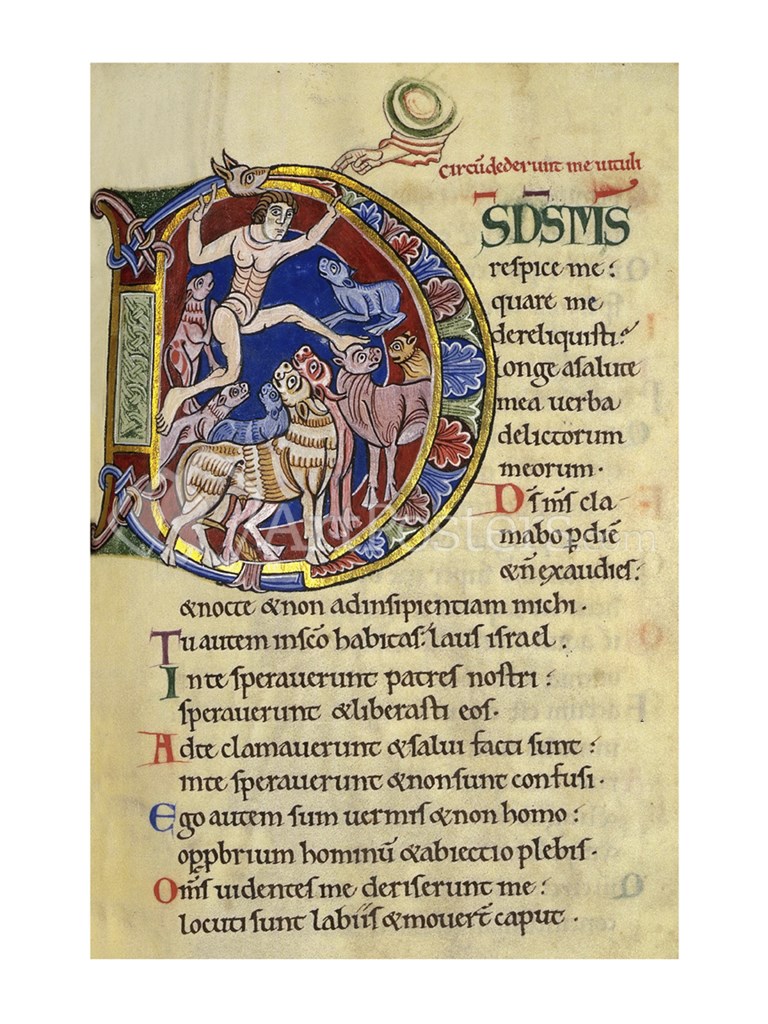 Circūdederunt me uituli
DSDSMS
respice me:
quare me
dereliquisti?
longe asalute
mea uerba
delictorum
meorum·
D̄s m̄s cla-
mabo ꝑ diē
&n̄ exaudies:
&nocte &non adinsipientiam michi·
Tu autem inscō habitas: laus israel.
In te sperauerunt patres nostri:
sperauerunt &liberasti eos·
Adte clamauerunt &salui facti sunt:
inte sperauerunt &nonsunt confusi·
Ego autem sum uermis &non homo:
opprbrium hominū &abiectio plebis·
Om̄s uidentes me deriserunt me:
locuti sunt labiis &mouer̄t caput·
ArtPosters.com